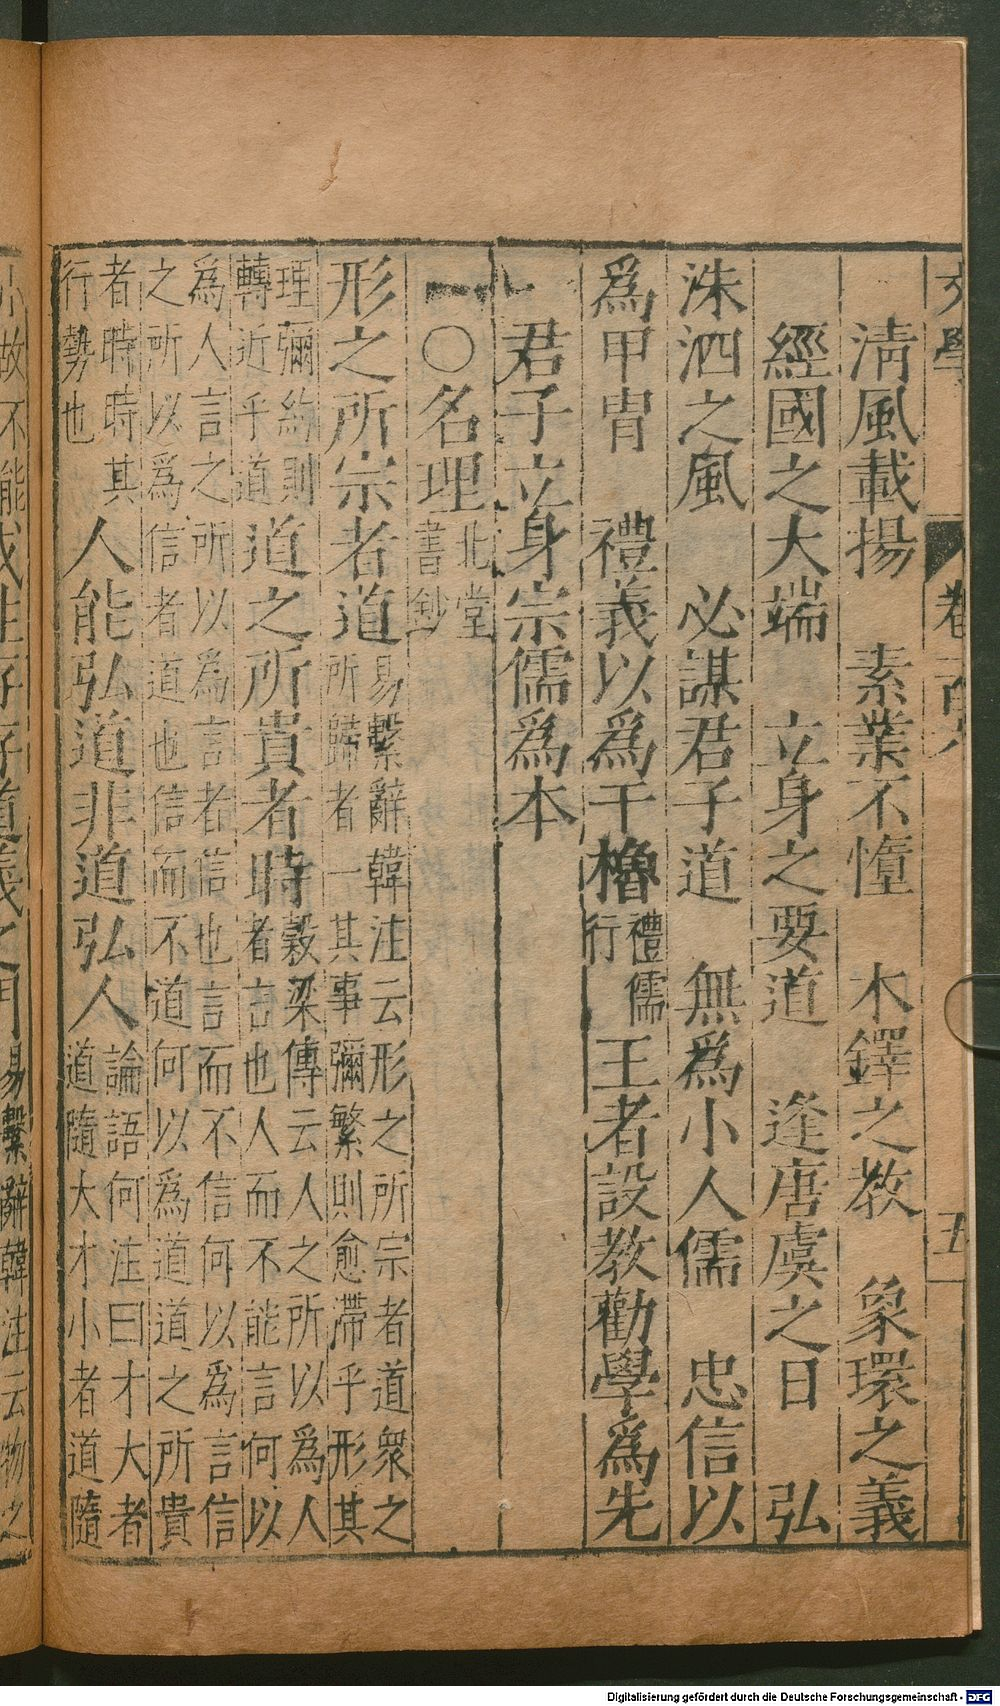 文學 卷一百 五
淸風載揚　素業不憧　木鐸之教　象環之義
經國之大端　立身之要道　逢唐虞之日　弘
洙泗之風　必謀君子道　無爲小人儒　忠信以
爲甲冑　禮義以爲干櫓禮儒行王者設教勸學爲先
君子立身宗儒爲本
一〇名理北堂書鈔
形之所宗者道易繫辭韓注云形之所宗者道衆之所歸者一其事彌繁則愈滯乎形其
理彌約則轉近乎道道之所貴者時穀梁傳云人之所以爲人者言也人而不能言何以
爲人言之所以爲言者信也言而不信何以爲言信之所以爲信者道也信而不道何以爲道道之所貴
者時時其行勢也人能弘道非道弘人論語何注曰才大者道隨大才小者道隨
小故不能成性存存道義之門易繫辭韓注云物之
Digitalisierung gefördert durch die Deutsche Forschungsgemeinschaft - DFG